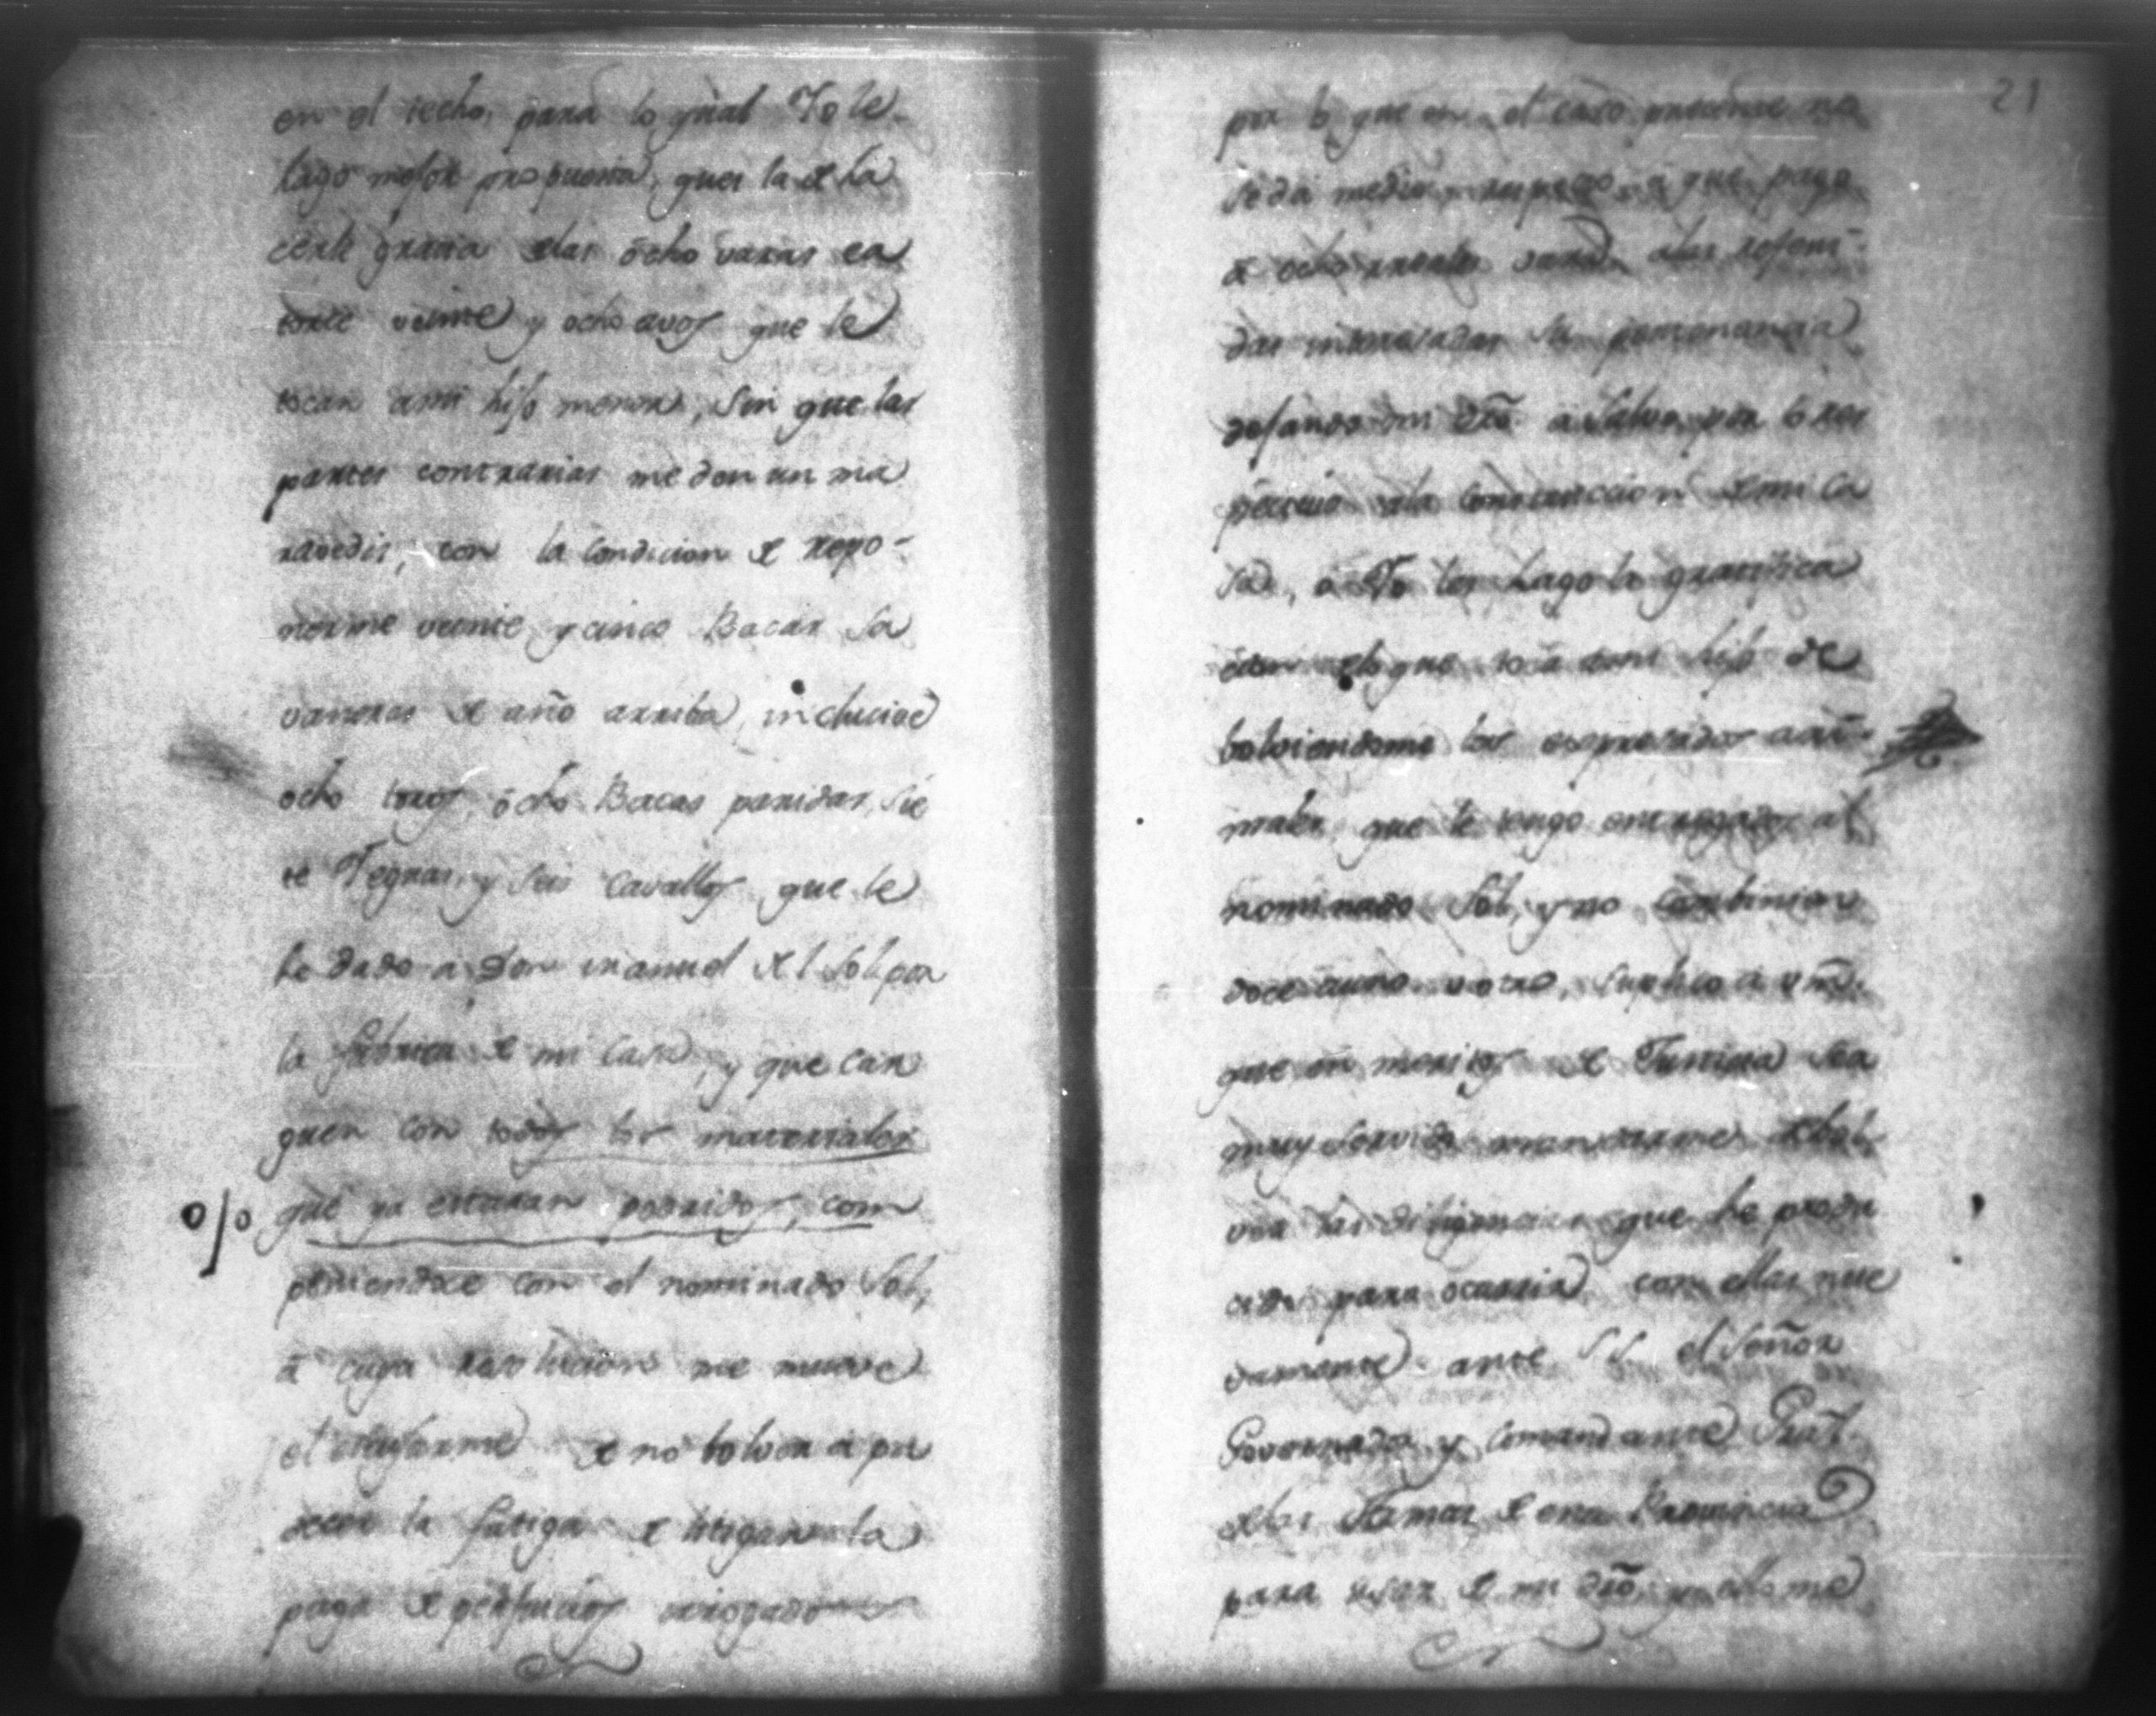 en el techo, para lo qual Yo le
hago mejor propuesta, que es la de ha
cerle gracia de las ocho varas ca
torce veinte y ocho avos que le
tocan a mi hijo menor, sin que las
partes contrarias me den un ma
ravedis, con la condicion de repo-
nerme veinte y cinco Bacas Sa
vaneras de año arriba, inclucive
ocho toros, ocho Bacas paridas, sie
te Yeguas, y seis cavallos que le
he dado a Don Manuel del Sol por
la fabrica de mi casa, y que car
guen con todos los materiales
que ya estaran podridos, com
poniendoce con el nominado Sol,
á cuya resolucion me mueve
el eludirme de no bolver a pa
decer la fatiga de litigar en la
paga de perjuicios
21
por lo que en el caso precente no
se da medio, respecto a que pago
á ocho reales vara a las referi-
das interesadas su pertenencia
dejando mi dro. a salvo por lo res
pectivo a la construccion de mi ca
sa, o Yo les hago la gratifica
cion de lo que toca a mi hijo de
bolviendome los expresados ani-
males que le tengo entregados al
nominado Sol, y no combinien
doce a uno u otro, suplico a vm.
que en meritos de Justicia sea
muy servido mandarme debol
ver las diligencias que he produ
cido para ocurrir con ellas nue
vamente ante S.S. el Señor
Governador y Comandante Gral.
de las Armas de esta Provincia
para usar de mi dro. y de lo me